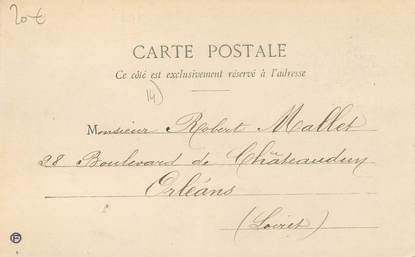 20€
CARTE POSTALE
Ce côté est exclusivement réservé à l'adresse
14)
Monsieur Robert Mallet
28 Boulevard de Châteaudun
Orléans
(Loiret)